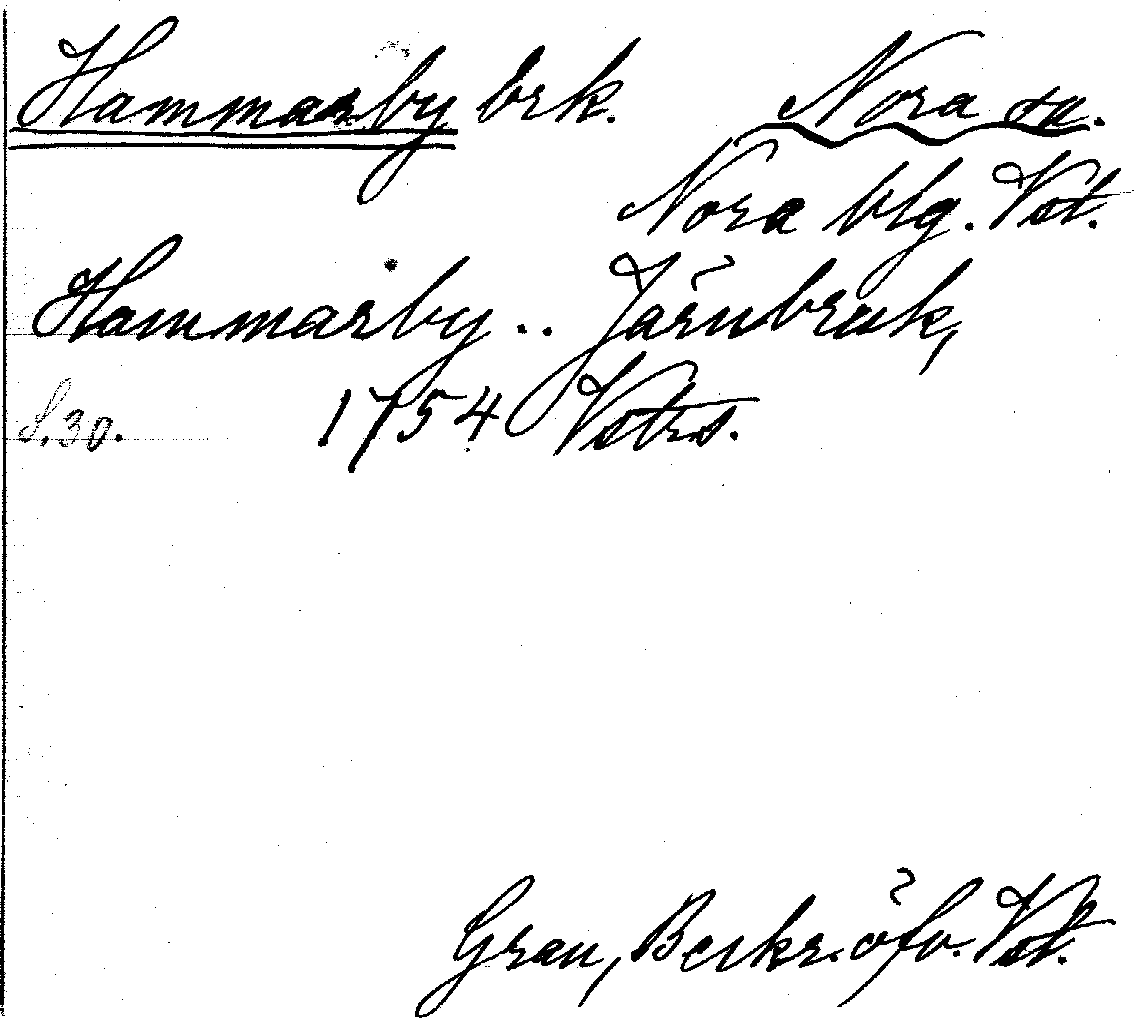 Hammarby brk. Nora sn.
Nora blg. Vst.
Hammarby .. Järnbruk,
S. 30. 1754 Vstrs.
Grau, Beskr. öfv. Vst.